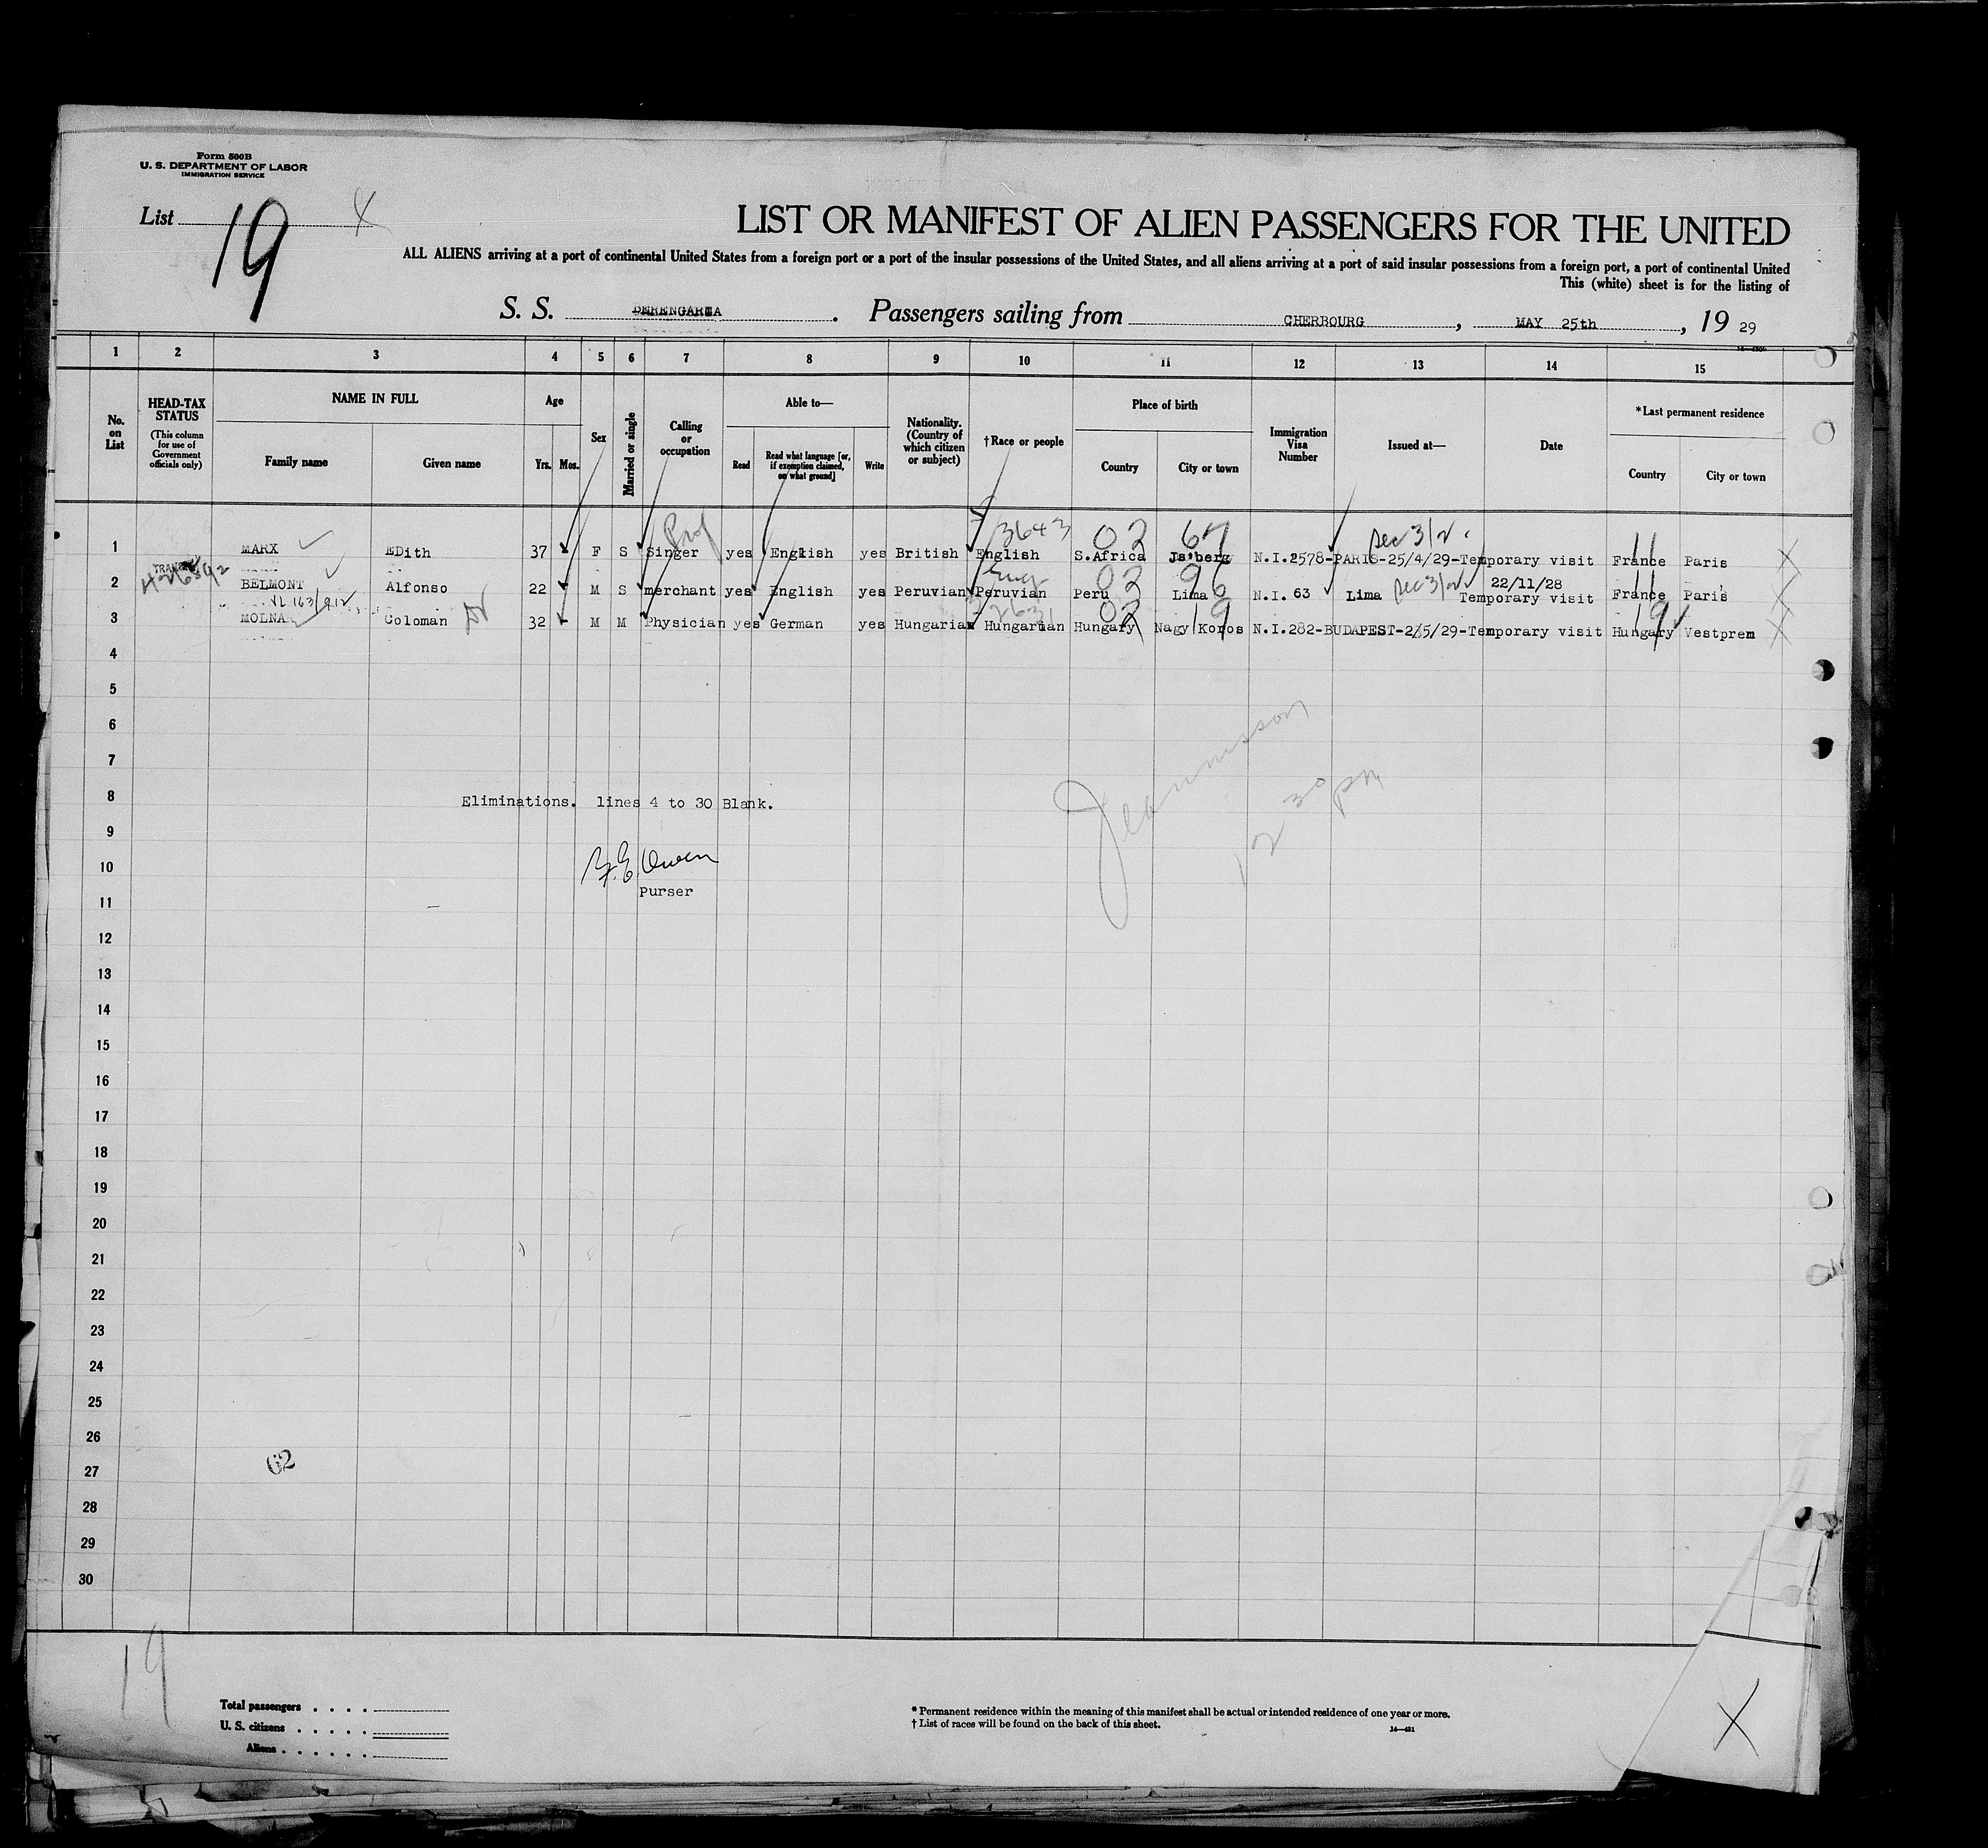 Form 500B
U. S. DEPARTMENT OF LABOR
IMMIGRATION SERVICE
List 19
LIST OR MANIFEST OF ALIEN PASSENGERS FOR THE UNITED
ALL ALIENS arriving at a port of continental United States from a foreign port or a port of the insular possessions of the United States, and all aliens arriving at a port of said insular possessions from a foreign port, a port of continental United
This (white) sheet is for the listing of
S. S. BERENGARIA. Passengers sailing from CHERBOURG, MAY 25th, 19 29
1 2 3 4 5 6 7 8 9 10 11 12 13 14 15
No. on List
HEAD-TAX STATUS
(This column for use of Government officials only)
NAME IN FULL
Family name
Given name
Age
Yrs. Mos.
Sex
Married or single
Calling or occupation
Able to—
Read
Read what language [or, if exemption claimed, on what ground]
Write
Nationality. (Country of which citizen or subject)
†Race or people
Place of birth
Country
City or town
Immigration Visa Number
Issued at—
Date
*Last permanent residence
Country
City or town
Prof 3643 02 67 Dec 3/2 11
1 MARX EDith 37 F S Singer yes English yes British English S.Africa Js'berg N.I.2578-PARIS-25/4/29-Temporary visit France Paris
TRANSIT
03 96 22/11/28 11
2 BELMONT Alfonso 22 M S merchant yes English yes Peruvian Peruvian Peru Lima N.I. 63 Lima Temporary visit France Paris
19 19
3 MOLNAR Coloman 32 M M Physician yes German yes Hungarian Hungarian Hungary Nagy Koros N.I.282-BUDAPEST-2/5/29-Temporary visit Hungary Vestprem
4
5
6
7
8 Eliminations. lines 4 to 30 Blank.
12 30 pm
9
10 Owen
Purser
11
12
13
14
15
16
17
18
19
20
21
22
23
24
25
26
62
27
28
29
30
19
Total passengers
U. S. citizens
Aliens
* Permanent residence within the meaning of this manifest shall be actual or intended residence of one year or more.
† List of races will be found on the back of this sheet.
14—431
X